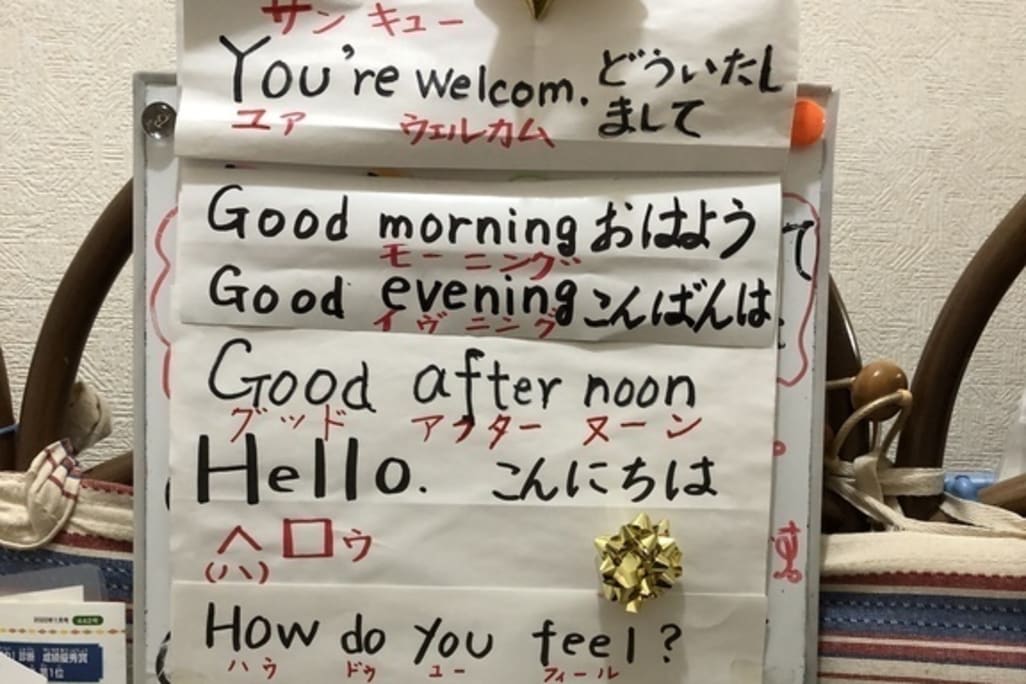 サンキュー
You're welcom. どういたし
まして
ユア ウェルカム
Good morning おはよう
モーニング
Good evening こんばんは
イヴニング
Good after noon
グッド アフターヌーン
Hello. こんにちは
ヘロウ
(ハ)
How do you feel?
ハウ ドゥ ユー フィール
て